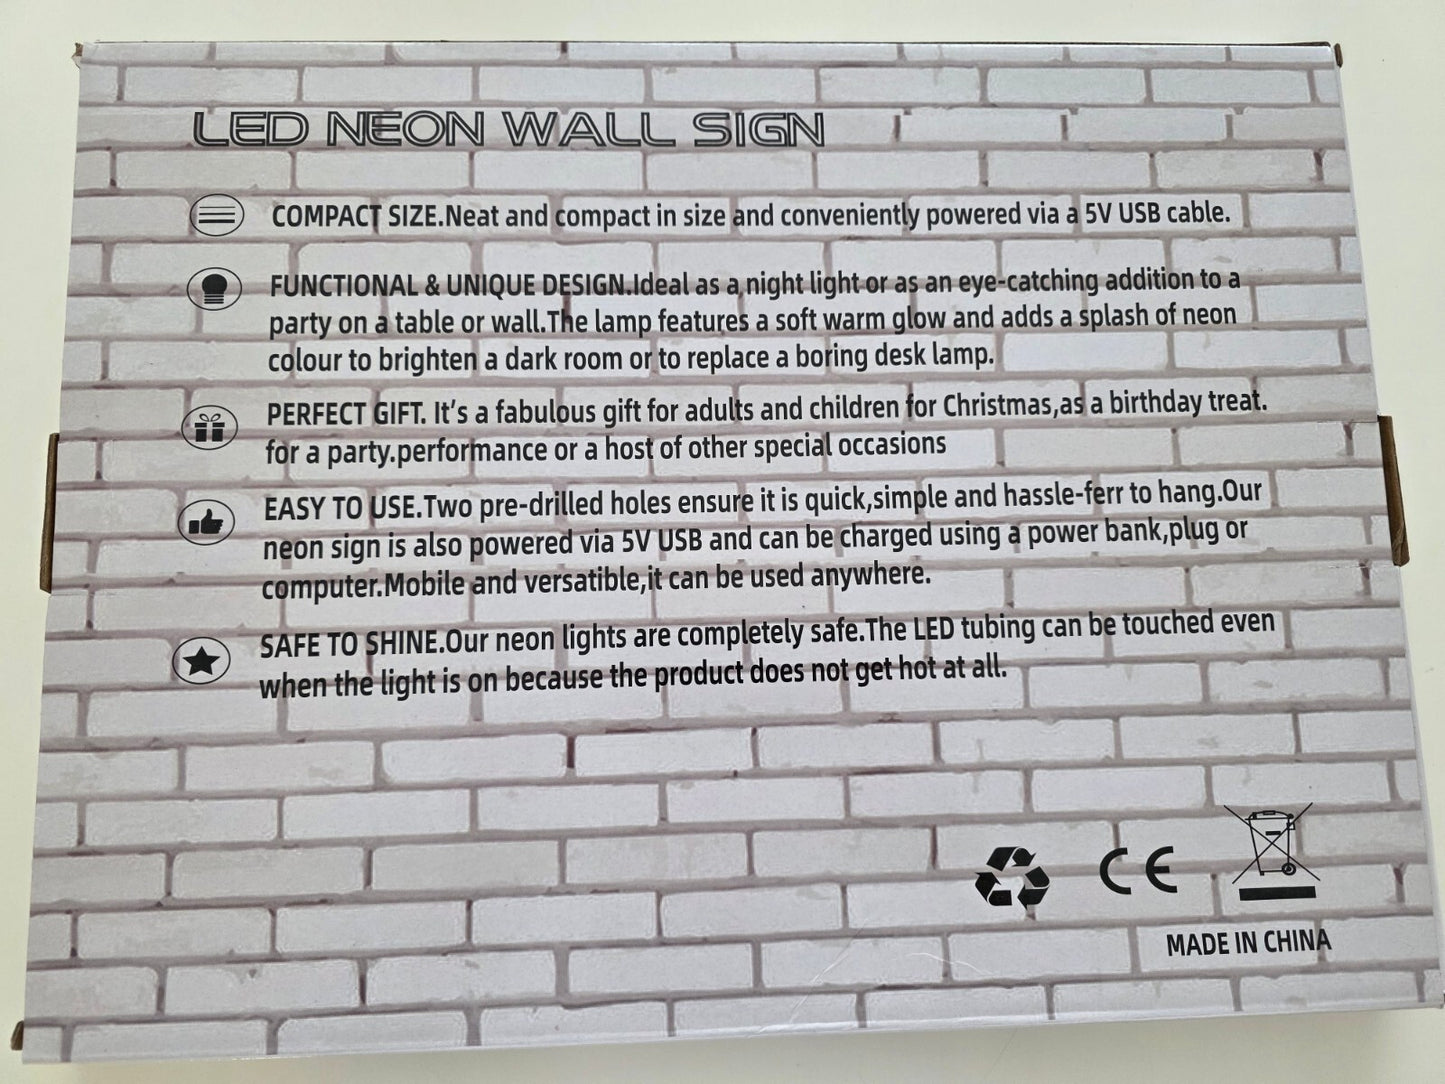 LED NEON WALL SIGN
COMPACT SIZE.Neat and compact in size and conveniently powered via a 5V USB cable.
FUNCTIONAL & UNIQUE DESIGN.Ideal as a night light or as an eye-catching addition to a
party on a table or wall.The lamp features a soft warm glow and adds a splash of neon
colour to brighten a dark room or to replace a boring desk lamp.
PERFECT GIFT. It's a fabulous gift for adults and children for Christmas,as a birthday treat.
for a party.performance or a host of other special occasions
EASY TO USE.Two pre-drilled holes ensure it is quick,simple and hassle-ferr to hang.Our
neon sign is also powered via 5V USB and can be charged using a power bank,plug or
computer.Mobile and versatible,it can be used anywhere.
SAFE TO SHINE.Our neon lights are completely safe.The LED tubing can be touched even
when the light is on because the product does not get hot at all.
CE
MADE IN CHINA